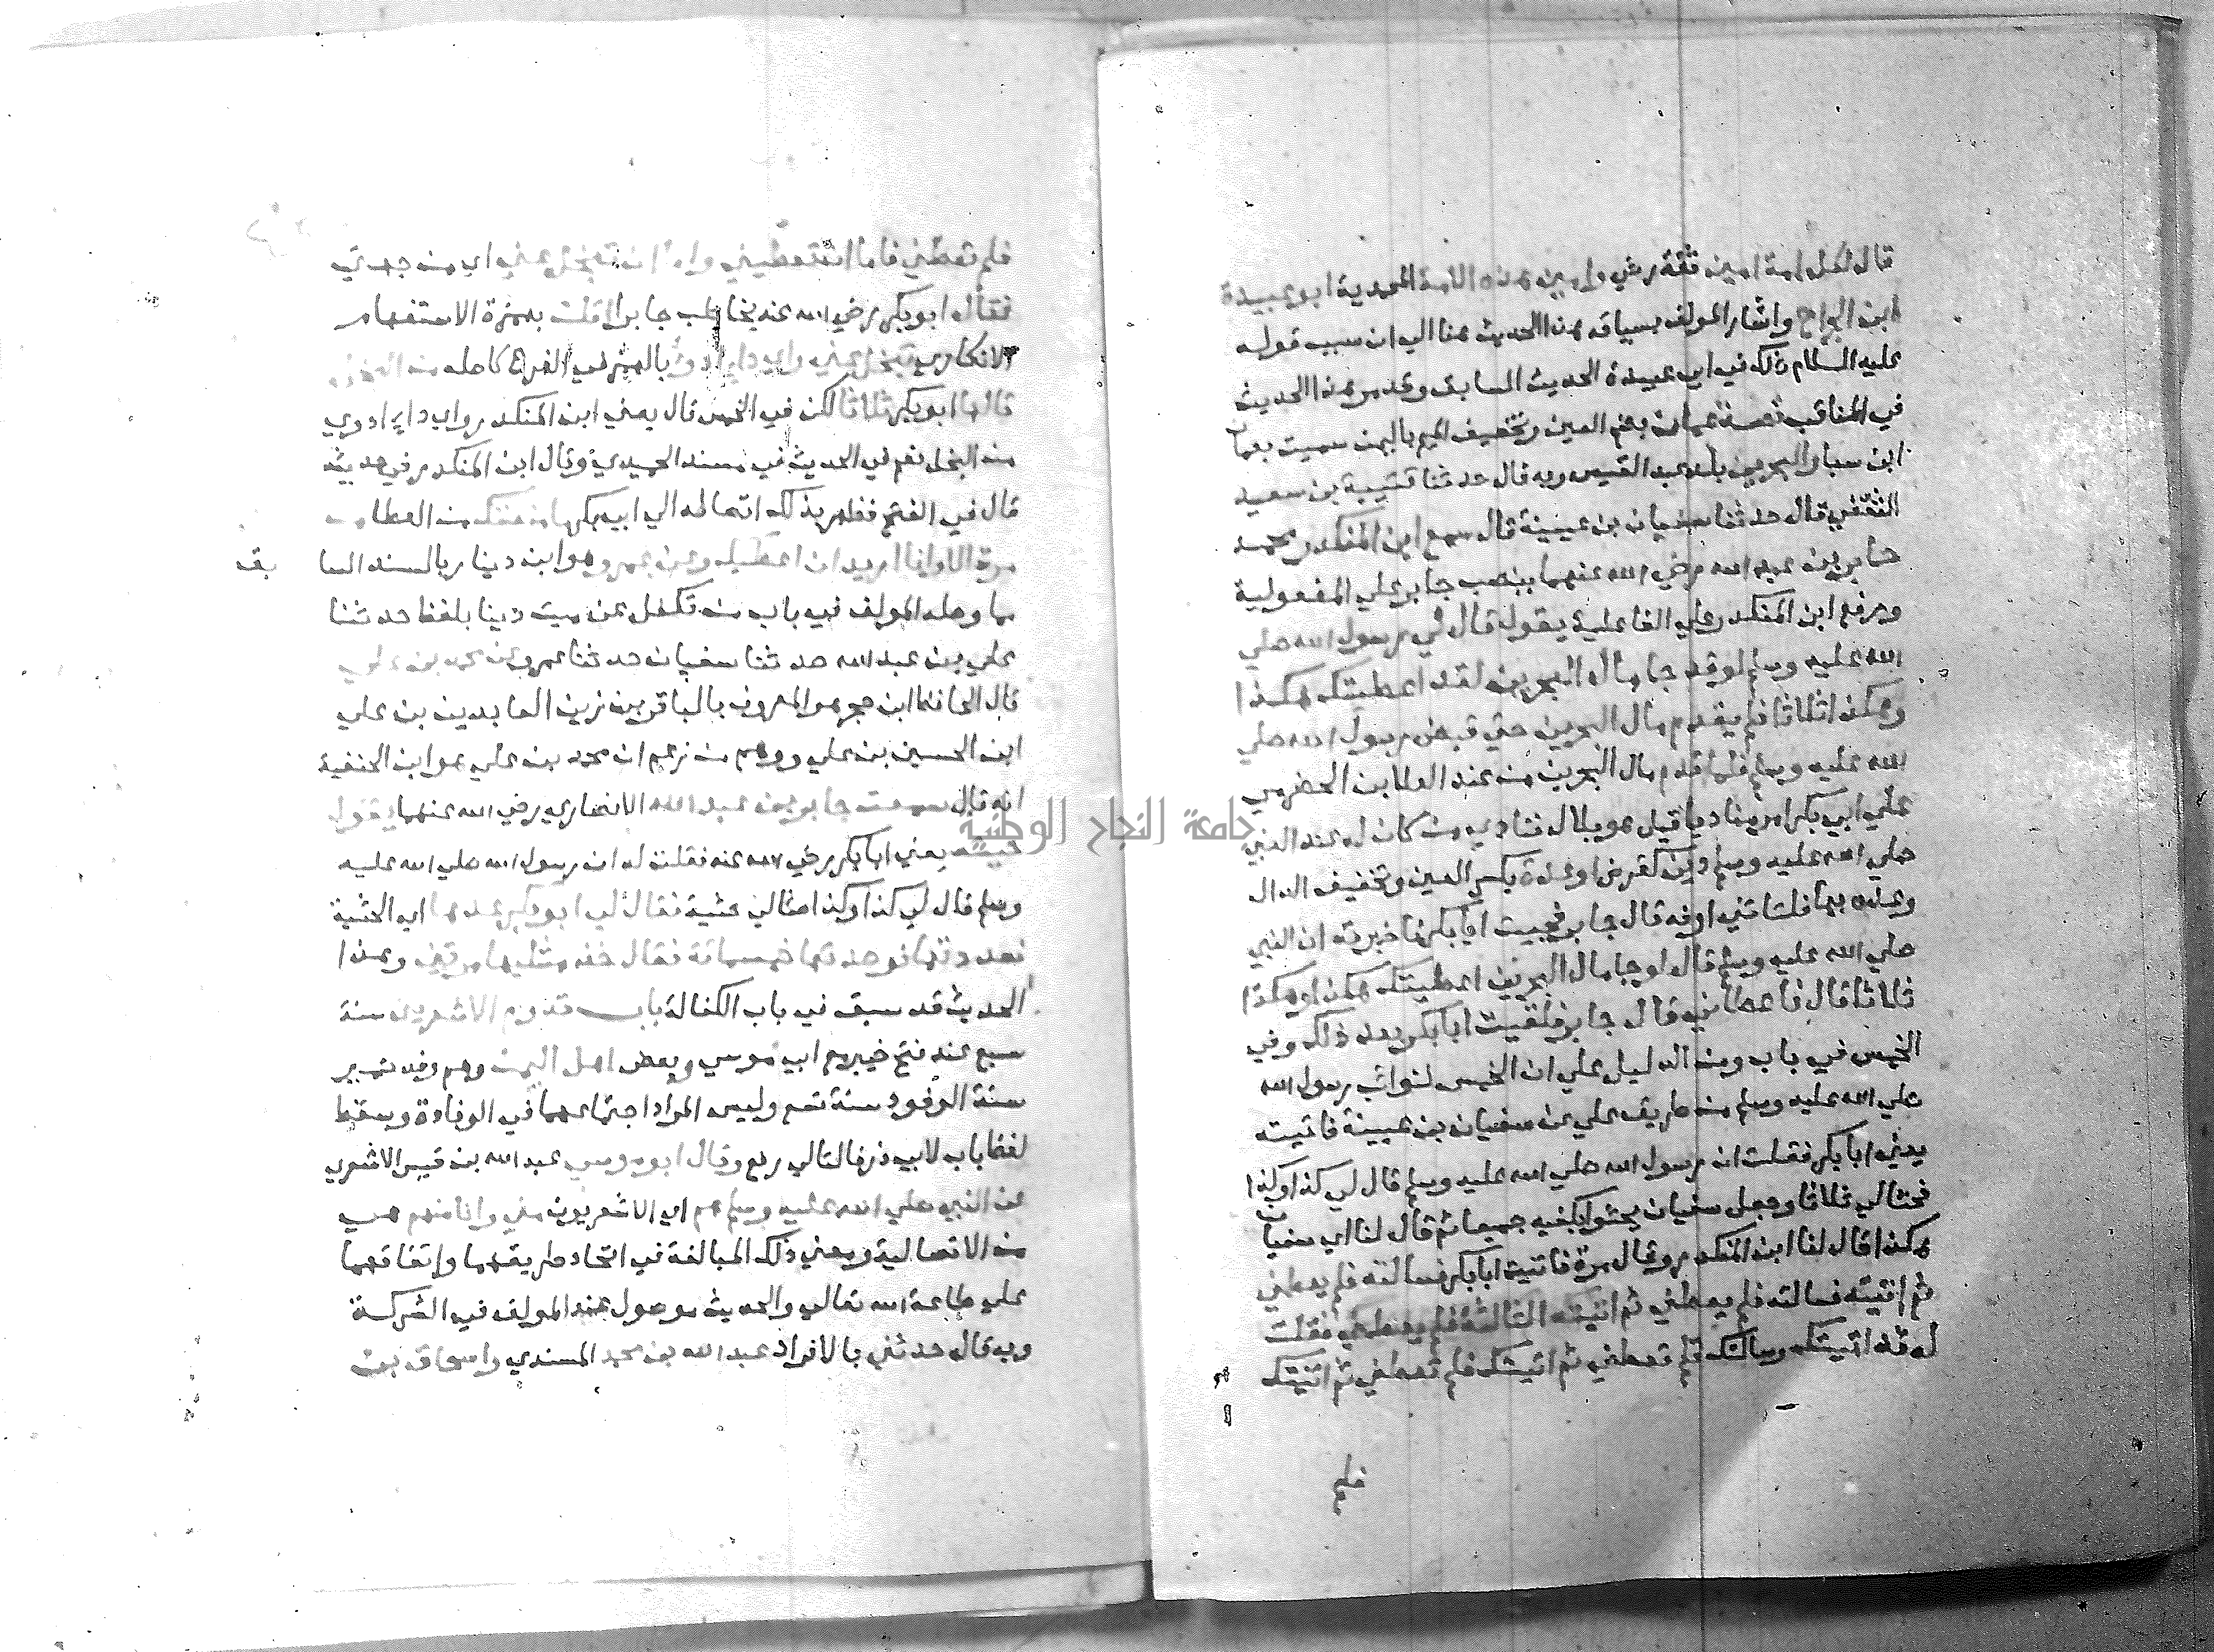 قال لكل امة امين ثقة رضي وامين هذه الامة المحمدية ابو عبيدة
ابن الجراح واشار المولف بسياقه هذا الحديث هنا الي ان سبب قوله
عليه السلام ذلك في ابي عبيدة الحديث السابق وقد مر هذا الحديث
في المناقب قصة عمان بضم العين وتخفيف الميم باليمن سميت بعمان
ابن سبا والبحرين بلد عبد القيس وبه قال حدثنا قتيبة بن سعيد
الثقفي قال حدثنا سفيان بن عيينة قال سمع ابن المنكدر محمد
جابر بن عبد الله رضي الله عنهما بنصب جابر علي المفعولية
ورفع ابن المنكدر علي الفاعلية يقول قال لي رسول الله صلي
الله عليه وسلم لو قد جا مال البحرين لقد اعطيتك هكذا
وهكذا ثلاثا فلم يقدم مال البحرين حتي قبض رسول الله صلي
الله عليه وسلم فلما قدم مال البحرين من عند العلا ابن الحضرمي
علي ابي بكر امر مناديا قيل هو بلال فنادي من كان له عند النبي
صلي الله عليه وسلم دين كقرض او عدة بكسر العين وتخفيف الدال
وعده بها فلياتني اوفه قال جابر فجيت ابا بكر فاخبرته ان النبي
صلي الله عليه وسلم قال لو جا مال البحرين اعطيتك هكذا وهكذا
ثلاثا قال فاعطاني قال جابر فلقيت ابا بكر بعد ذلك وفي
الخمس في باب ومن الدليل علي ان الخمس لنوائب رسول الله
صلي الله عليه وسلم من طريق علي عن سفيان بن عيينة فاتيته
يعني ابا بكر فقلت ان رسول الله صلي الله عليه وسلم قال لي كذا وكذا
فحثالي ثلاثا وجعل سفيان يحثو بكفيه جميعا ثم قال لنا اي سفيان
هكذا قال لنا ابن المنكدر وقال مرة فاتيت ابا بكر فسالته فلم يعطني
ثم اتيته فسالته فلم يعطني ثم اتيته الثالثة فلم يعطني فقلت
له قد اتيتك وسالتك فلم تعطني ثم اتيتك فلم تعطني ثم اتيتك
فلم
فلم تعطني فاما ان تعطيني واما ان تبخل عني اي من جهتي
فقال ابو بكر رضي الله عنه يخاطب جابرا اقلت بهمزة الاستفهام
الانكاري تبخل عني واي دا ادوا بالهمز في الفرع كاصله من
قالها ابو بكر ثلاثا لكن في الخمس قال يعني ابن المنكدر واي دا ادوي
من البخل نعم في الحديث في مسند الحميدي وقال ابن المنكدر في حديثه
قال في الفتح فظهر بذلك اتصاله الي ابي بكر ما منعتك من العطا من
مرة الا وانا اريد ان اعطيك وعن عمرو هو ابن دينار بالسند السا بق
مما وصله المولف في باب من تكفل عن ميت دينا بلفظ حدثنا
علي بن عبد الله حدثنا سفيان حدثنا عمرو عن محمد بن علي
قال الحافظ ابن حجر هو المعروف بالباقر بن زين العابدين بن علي
ابن الحسين بن علي ووهم من زعم ان محمد بن علي هو ابن الحنفية
انه قال سمعت جابر بن عبد الله الانصاري رضي الله عنهما يقول
جيته يعني ابا بكر رضي الله عنه فقلت له ان رسول الله صلي الله عليه
وسلم قال لي كذا وكذا فحثالي حثية فقال لي ابو بكر عدها اي الحثية
فعددتها فوجدتها خمسمائة فقال خذ مثليها مرتين وهذا
الحديث قد سبق في باب الكفالة باب قدوم الاشعريين سنة
سبع عند فتح خيبر مع ابي موسي وبعض اهل اليمن وهم وفد حمير
سنة الوفود سنة تسع وليس المراد اجتماعهما في الوفادة وسقط
لفظ باب لابي ذر فالتالي رفع وقال ابو موسي عبد الله بن قيس الاشعري
عن النبي صلي الله عليه وسلم هم اي الاشعريون مني وانا منهم هي
من الاتصالية ومعني ذلك المبالغة في اتحاد طريقهما واتفاقهما
علي طاعة الله تعالي والحديث موصول عند المولف في الشركة
وبه قال حدثني بالافراد عبد الله بن محمد المسندي واسحاق بن
جامعة النجاح الوطنية